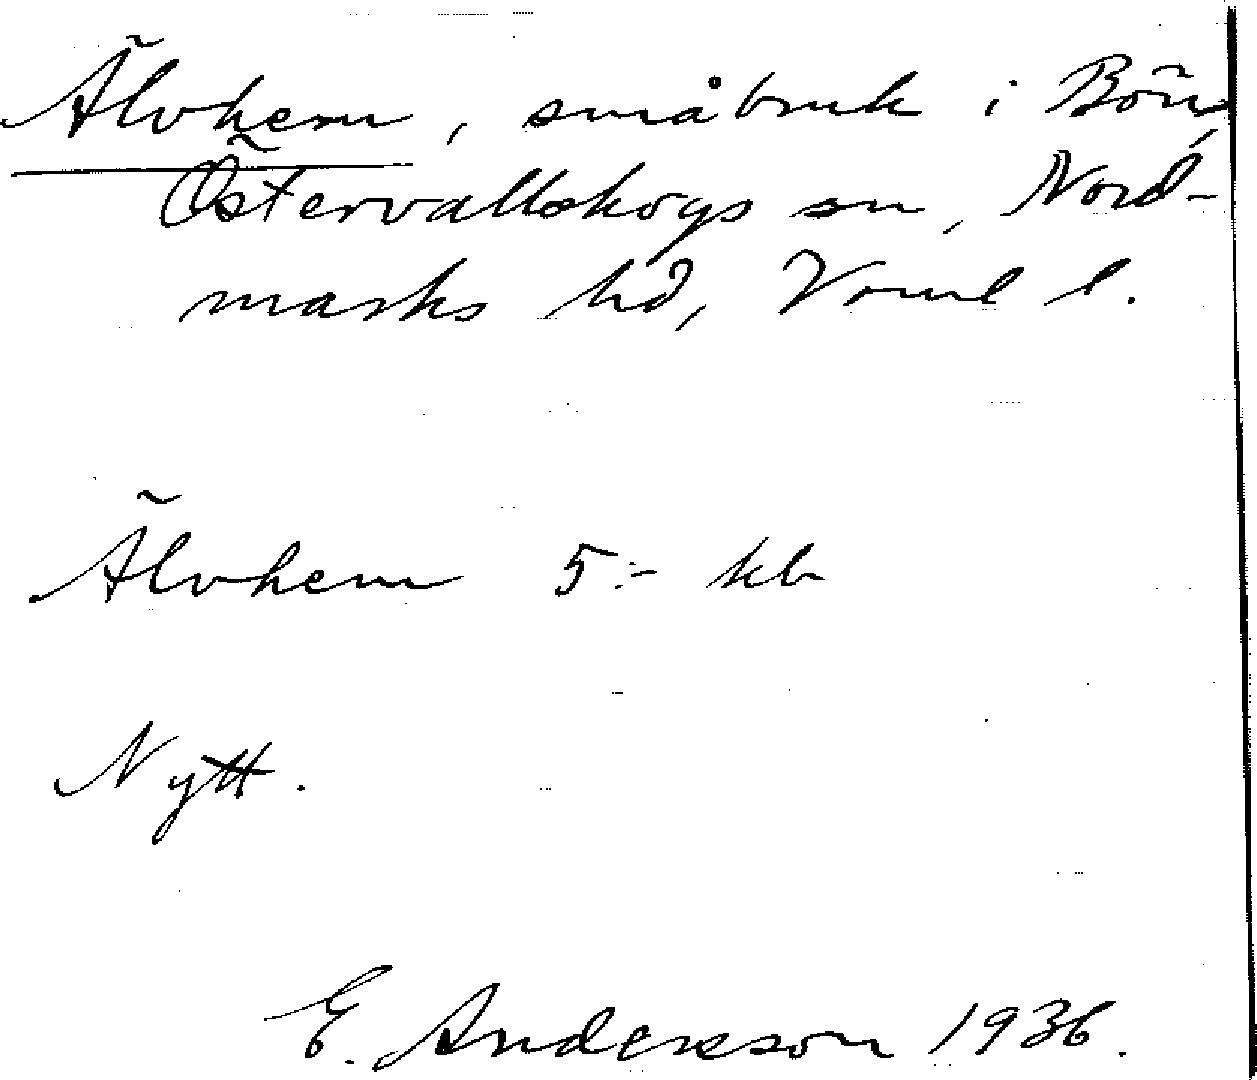 Älvhem, småbruk i Bön,
Östervallskogs sn, Nord-
marks hd, Värml l.
Älvhem 5:- kb
Nytt.
E. Andersson 1936.